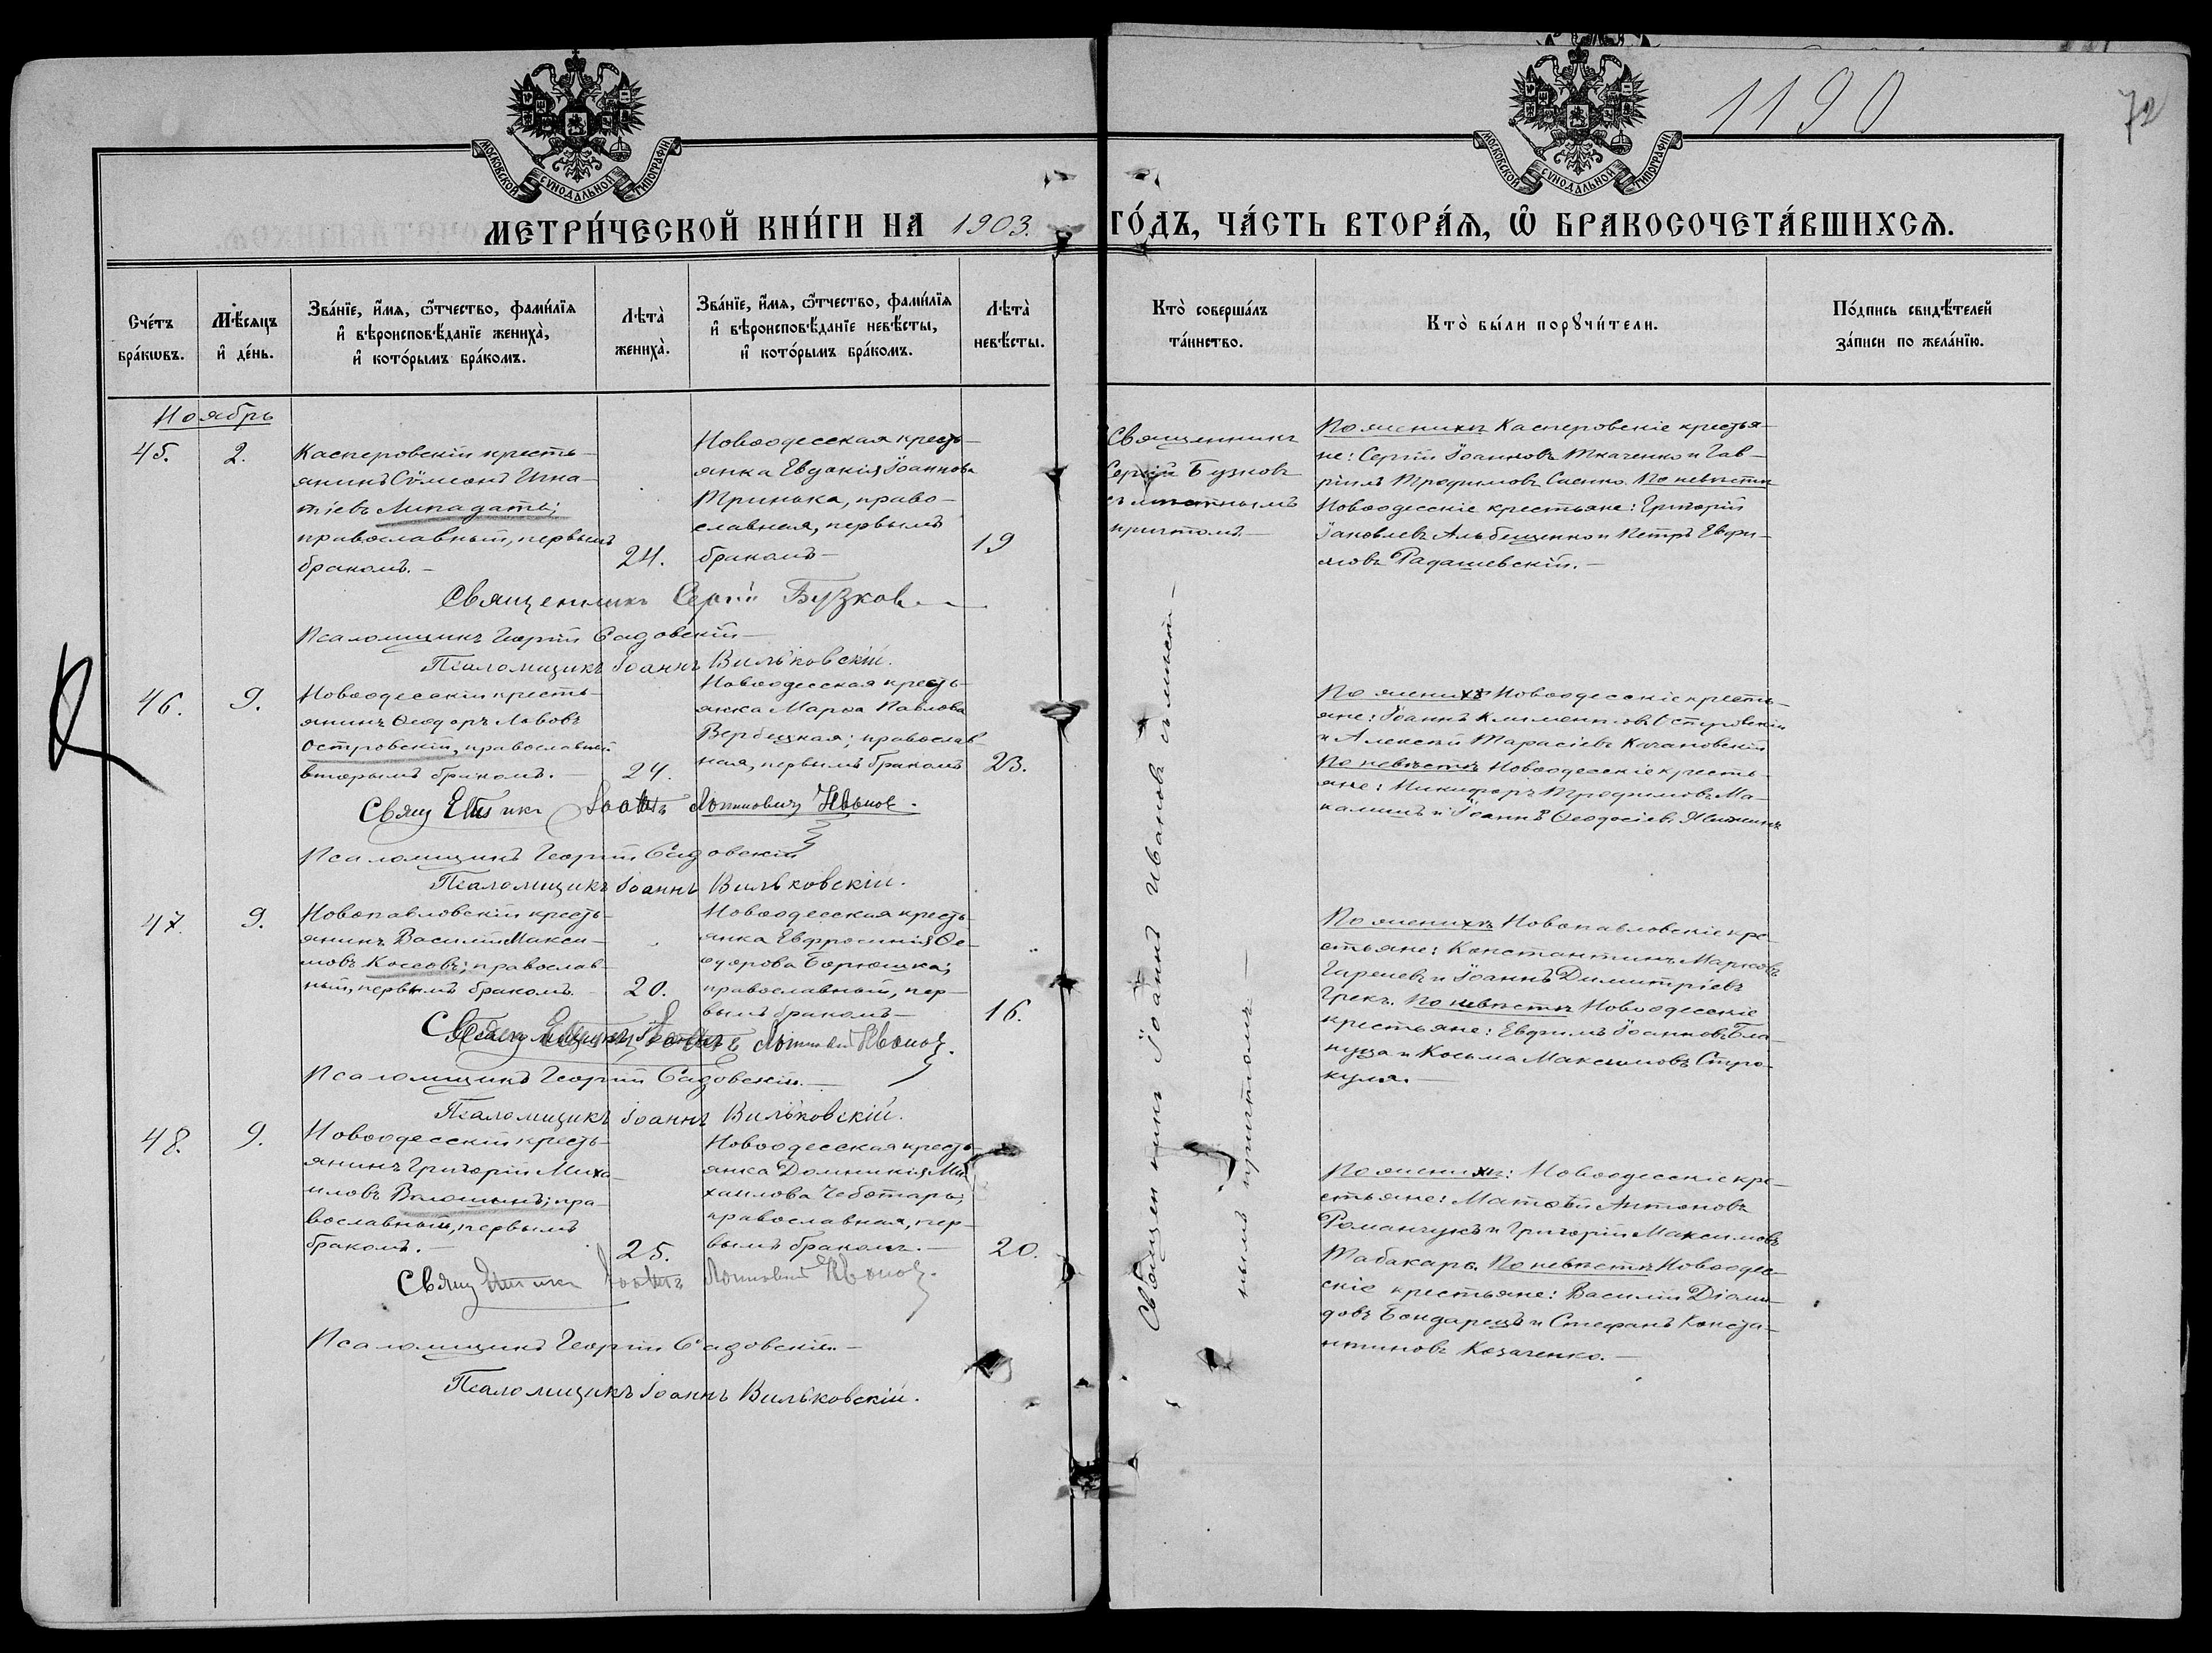 1190
72
МОСКОВСКОЙ СѴНОДАЛЬНОЙ ТИПОГРАФІИ
МОСКОВСКОЙ СѴНОДАЛЬНОЙ ТИПОГРАФІИ
МЕТРИ́ЧЕСКОЙ КНИ́ГИ НА 1903. ГО́ДЪ, ЧА́СТЬ ВТОРА́Ѧ, Ѽ БРАКОСОЧЕТА́ВШИХСѦ.
Сче́тъ
бра́кѡвъ.
Мѣ́сѧцъ
и҆ де́нь.
Зва́нїе, и҆́мѧ, ѻ҆́тчество, фами́лїѧ
и҆ вѣроисповѣ́данїе жениха̀,
и҆ кото́рымъ бра́комъ.
Лѣта̀
жениха̀.
Зва́нїе, и҆́мѧ, ѻ҆́тчество, фами́лїѧ
и҆ вѣроисповѣ́данїе невѣ́сты,
и҆ кото́рымъ бра́комъ.
Лѣта̀
невѣ́сты.
Кто̀ соверша́лъ
та́инство.
Кто̀ бы́ли порꙋчи́тели.
По́дпись свидѣ́телей
за́писи по жела́нїю.
Ноябрь
45.
2.
Касперовскій кресть-
янинъ Сѵмеонъ Игна-
тіевъ Липадатъ;
православный, первымъ
бракомъ. -
24.
Новоодесская кресть-
янка Евдокія Іоаннова
Тринька, право-
славная, первымъ
бракомъ -
19
Священникъ
Сергій Бузковъ
съ мѣстнымъ
причтомъ. -
По женихѣ Касперовскіе крестья-
не: Сергій Іоанновъ Ткаченко и Гав-
ріилъ Трофимовъ Саенко. По невѣстѣ
Новоодесскіе крестьяне: Григорій
Іаковлевъ Альбещенко и Петръ Евфи-
мовъ Радашевскій. -
Священникъ Сергій Бузков
Псаломщикъ Георгій Садовскій -
Псаломщикъ Іоаннъ Вильковскій.
46.
9.
Новоодесскій кресть-
янинъ Ѳеодоръ Львовъ
Островскій, православный
вторымъ бракомъ. -
24.
Новоодесская кресть-
янка Марѳа Павлова
Вербецкая; православ-
ная, первымъ бракомъ
23.
По женихѣ Новоодесскіе кресть-
яне: Іоаннъ Климентовъ Островскій
и Алексій Тарасіевъ Качановскій
По невѣстѣ Новоодесскіе кресть-
яне: Никифоръ Трофимовъ Ма-
и Іоаннъ Ѳеодосіевъ
Священникъ Іоаннъ Иванов.
Псаломщикъ Георгій Садовскій
Псаломщикъ Іоаннъ Вильковскій.
47.
9.
Новопавловскій кресть-
янинъ Василій Макси-
мовъ Коссовъ; православ-
ный, первымъ бракомъ. -
20.
Новоодесская кресть-
янка Евфросинія Ѳе-
одорова Борюшка;
православный, пер-
вымъ бракомъ -
16.
По женихѣ Новопавловскіе кре-
стьяне: Константинъ Марковъ
и Іоаннъ Димитріевъ
Грекъ. По невѣстѣ Новоодесскіе
крестьяне: Евфимъ Іоанновъ
и Косьма Максимовъ Стро-
куля. -
Священникъ Іоаннъ Иванов.
Псаломщикъ Георгій Садовскій. -
Псаломщикъ Іоаннъ Вильковскій.
48.
9.
Новоодесскій кресть-
янинъ Григорій Миха-
иловъ Волошинъ; пра-
вославный, первымъ
бракомъ. -
25.
Новоодесская кресть-
янка Домникія Ми-
хаилова Чеботарь;
православная, пер-
вымъ бракомъ. -
20.
По женихѣ: Новоодесскіе кре-
стьяне: Матѳій Антоновъ
Романчукъ и Григорій Максимовъ
Табакаръ. По невѣстѣ Новоодес-
скіе крестьяне: Василій Діоми-
довъ Бондарецъ и Стефанъ Конста-
нтиновъ Козаченко. -
Священникъ Іоаннъ Иванов.
Псаломщикъ Георгій Садовскій. -
Псаломщикъ Іоаннъ Вильковскій.
Священникъ Іоаннъ Ивановъ съ мѣст-
нымъ причтомъ -